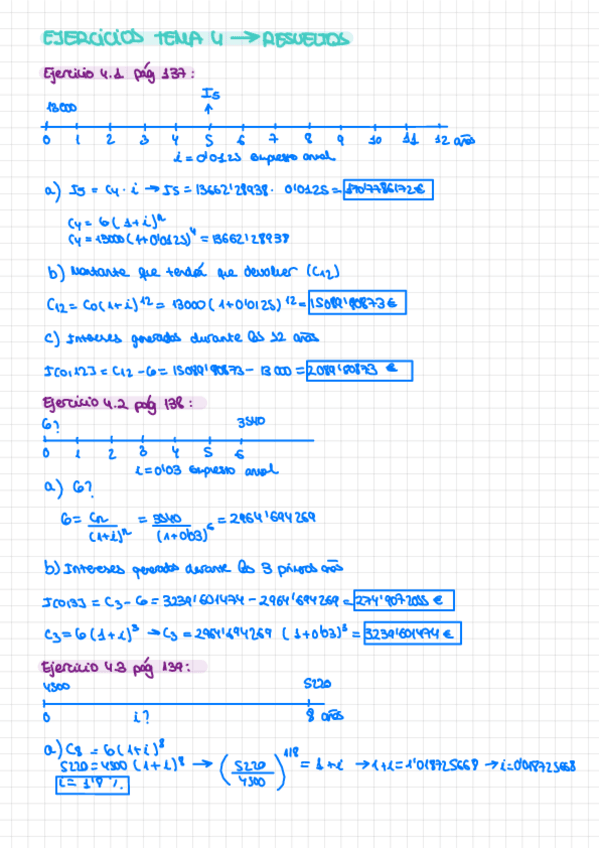 EJERCICIOS TEMA 4 → RESUELTOS
Ejercicio 4.1 pág 137:
I5
13000
0 1 2 3 4 5 6 7 8 9 10 11 12 años
i = 0'0125 expreso anual
a) I5 = C4 · i → I5 = 13662'28938 · 0'0125 = 170'7786172 €
C4 = C0 (1+i)^n
C4 = 13000 (1+0'0125)^4 = 13662'28938
b) Montante que tendrá que devolver (C12)
C12 = C0 (1+i)^12 = 13000 (1+0'0125)^12 = 15089'80873 €
c) Intereses generados durante los 12 años
I[0,12] = C12 - C0 = 15089'80873 - 13000 = 2089'80873 €
Ejercicio 4.2 pág 138:
C0? 3540
0 1 2 3 4 5 6
i = 0'03 expreso anual
a) C0?
C0 = Cn / (1+i)^n = 3540 / (1+0'03)^6 = 2964'694269
b) Intereses generados durante los 3 primeros años
I[0,3] = C3 - C0 = 3239'601474 - 2964'694269 = 274'9072055 €
C3 = C0 (1+i)^3 → C3 = 2964'694269 (1+0'03)^3 = 3239'601474 €
Ejercicio 4.3 pág 139:
4500 5220
0 i? 8 años
a) C8 = C0 (1+i)^8
5220 = 4500 (1+i)^8 → (5220 / 4500)^1/8 = 1+i → 1+i = 1'018725668 → i = 0'018725668
i = 1'8 %